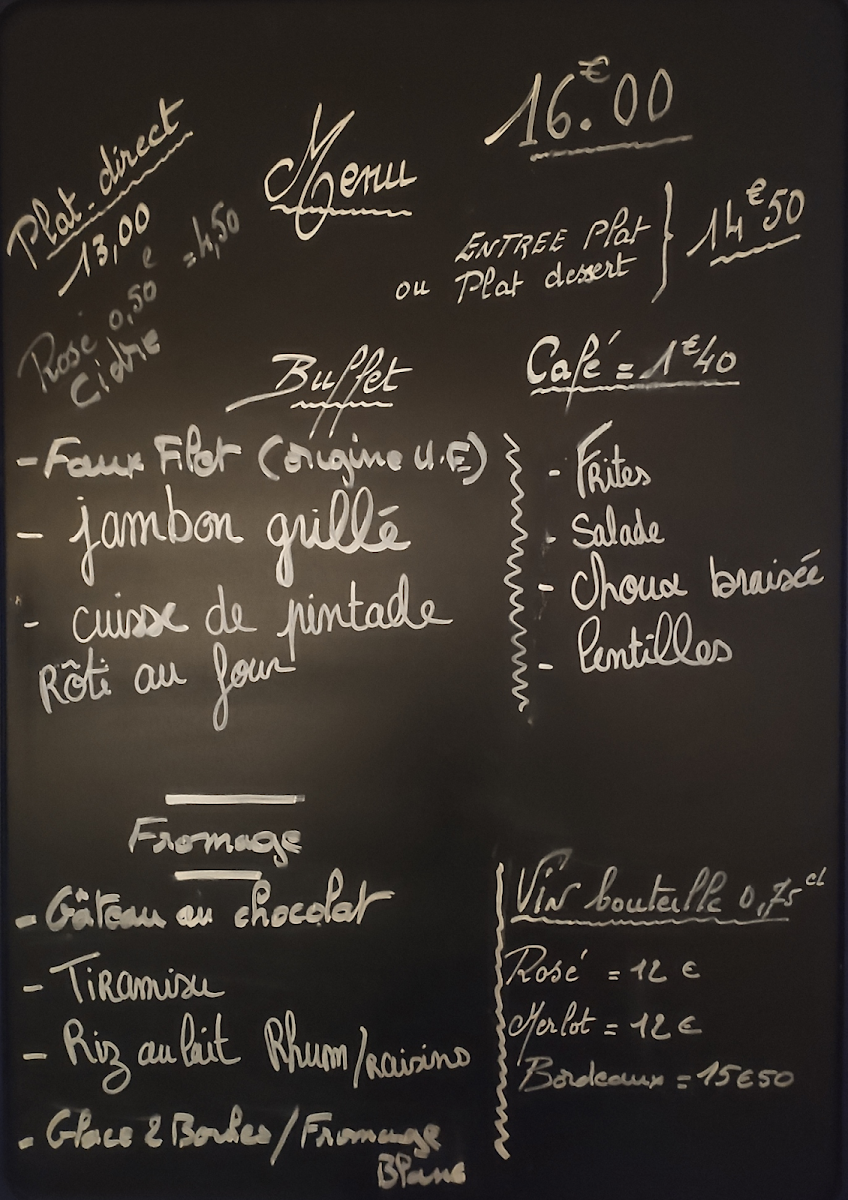 Menu
16.€00
Plat direct
13,00
Rosé 0,50 e = 4,50
Cidre
ENTREE Plat
ou Plat dessert
14€50
Buffet
Café = 1€40
- Faux Filet (origine U.E)
- jambon grillé
- cuisse de pintade
Rôti au four
- Frites
- Salade
- choux braisée
- lentilles
Fromage
- Gâteau au chocolat
- Tiramisu
- Riz au lait Rhum/raisins
- Glace 2 Boules/Fromage
Blanc
Vin bouteille 0,75 cl
Rosé = 12 €
Merlot = 12 €
Bordeaux = 15€50